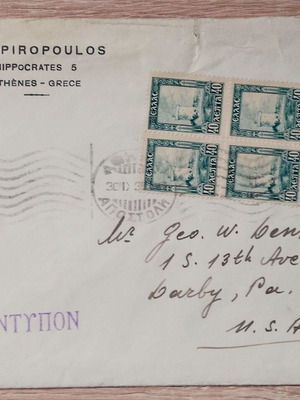 PIROPOULOS
HIPPOCRATES 5
THÈNES - GRECE
ΕΛΛΑΣ ΛΕΠΤΑ 40
ΕΛΛΑΣ ΛΕΠΤΑ 40
40 ΕΛΛΑΣ ΛΕΠΤΑ 40
40 ΕΛΛΑΣ ΛΕΠΤΑ 40
ΑΠΟΣΤΟΛΗ
Mr Geo. W.
1 S. 13th Ave
Darby, Pa.
U.S.A
ΝΤΥΠΟΝ